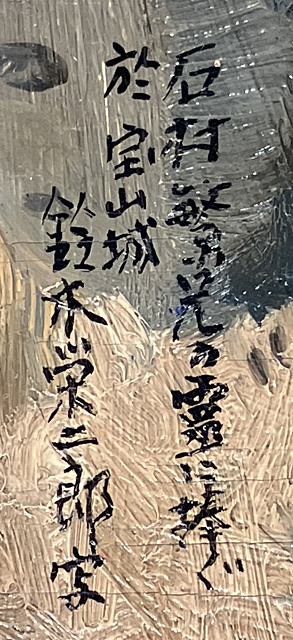 石村繁芳の霊に捧ぐ
於宝山城
鈴木栄二郎写